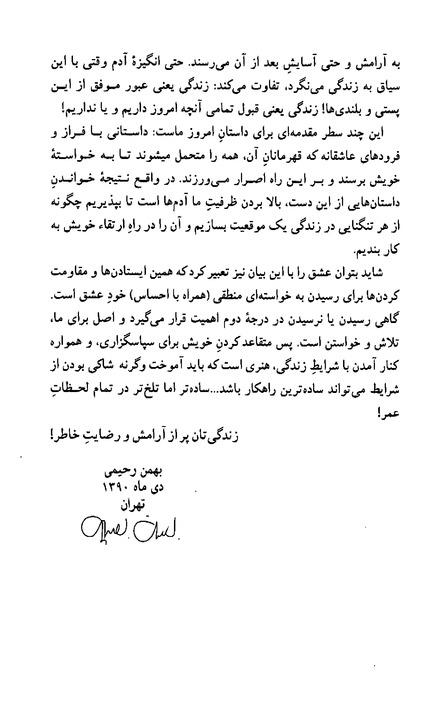 به آرامش و حتی آسایشِ بعد از آن می‌رسند. حتی انگیزهٔ آدم وقتی با این
سیاق به زندگی می‌نگرد، تفاوت می‌کند: زندگی یعنی عبور موفق از این
پستی و بلندی‌ها! زندگی یعنی قبول تمامی آنچه امروز داریم و یا نداریم!
این چند سطر مقدمه‌ای برای داستانِ امروز ماست: داستانی با فراز و
فرودهای عاشقانه که قهرمانانِ آن، همه را متحمل میشوند تا به خواستهٔ
خویش برسند و بر این راه اصرار می‌ورزند. در واقع نتیجهٔ خواندنِ
داستان‌هایی از این دست، بالا بردن ظرفیتِ ما آدم‌ها است تا بپذیریم چگونه
از هر تنگنایی در زندگی یک موقعیت بسازیم و آن را در راهِ ارتقاء خویش به
کار بندیم.
شاید بتوان عشق را با این بیان نیز تعبیر کرد که همین ایستادن‌ها و مقاومت
کردن‌ها برای رسیدن به خواسته‌ای منطقی (همراه با احساس) خودِ عشق است.
گاهی رسیدن یا نرسیدن در درجهٔ دوم اهمیت قرار می‌گیرد و اصل برای ما،
تلاش و خواستن است. پس متقاعد کردنِ خویش برای سپاسگزاری، و همواره
کنار آمدن با شرایطِ زندگی، هنری است که باید آموخت وگرنه شاکی بودن از
شرایط می‌تواند ساده‌ترین راهکار باشد...ساده‌تر اما تلخ‌تر در تمام لحظاتِ
عمر!
زندگی‌تان پر از آرامش و رضایتِ خاطر!
بهمن رحیمی
دی ماه ۱۳۹۰
تهران